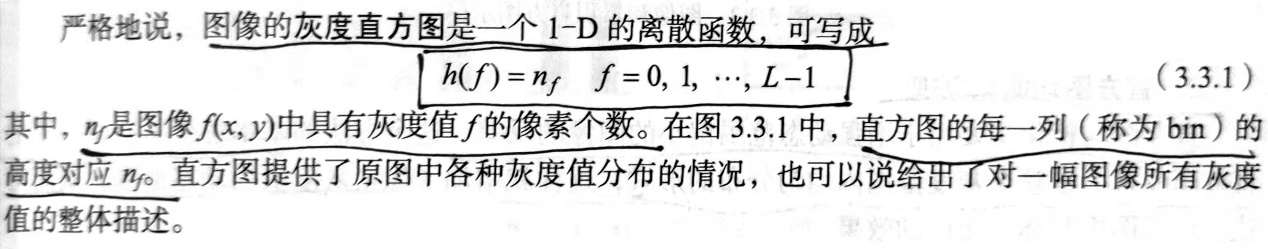 严格地说，图像的灰度直方图是一个 1-D 的离散函数，可写成
h(f) = n_f   f = 0, 1, ⋯, L−1   （3.3.1）
其中，n_f是图像 f(x, y)中具有灰度值 f 的像素个数。在图 3.3.1 中，直方图的每一列（称为 bin）的
高度对应 n_f。直方图提供了原图中各种灰度值分布的情况，也可以说给出了对一幅图像所有灰度
值的整体描述。